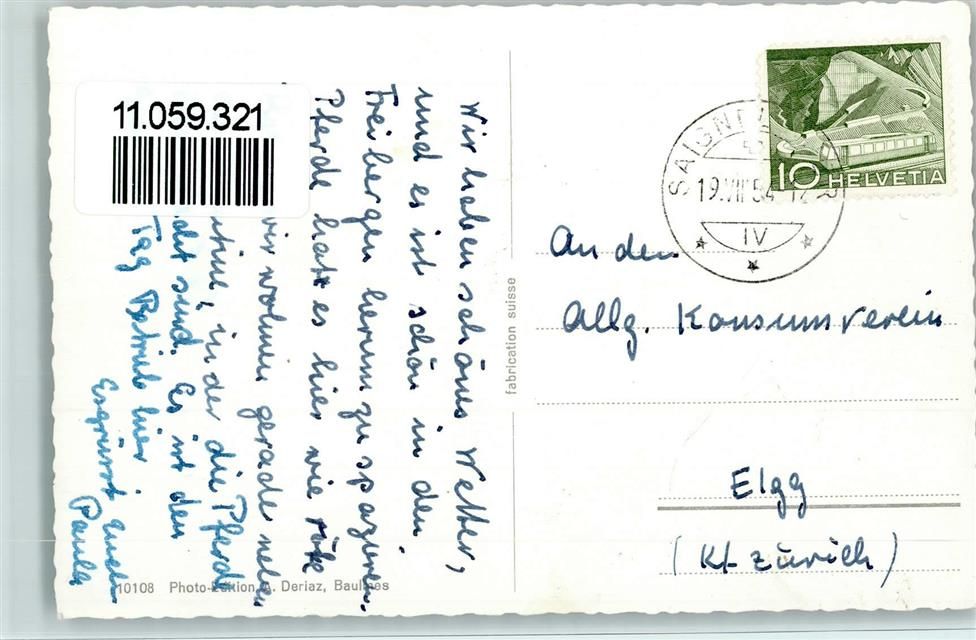 11.059.321
Wir haben schönes Wetter,
und es ist schön in den
Freibergen herumzuspazieren.
Pferde hat es hier wie
wir wohnen gerade neben
in der die Pferde
sind. Es ist den
Tag Betrieb hier
Es grüsst euch
Paula
10108 Photo-Edition A. Deriaz, Baulmes
fabrication suisse
10 HELVETIA
19.VII 54
IV
An den
Allg. Konsumverein
Elgg
(Kt. Zürich)